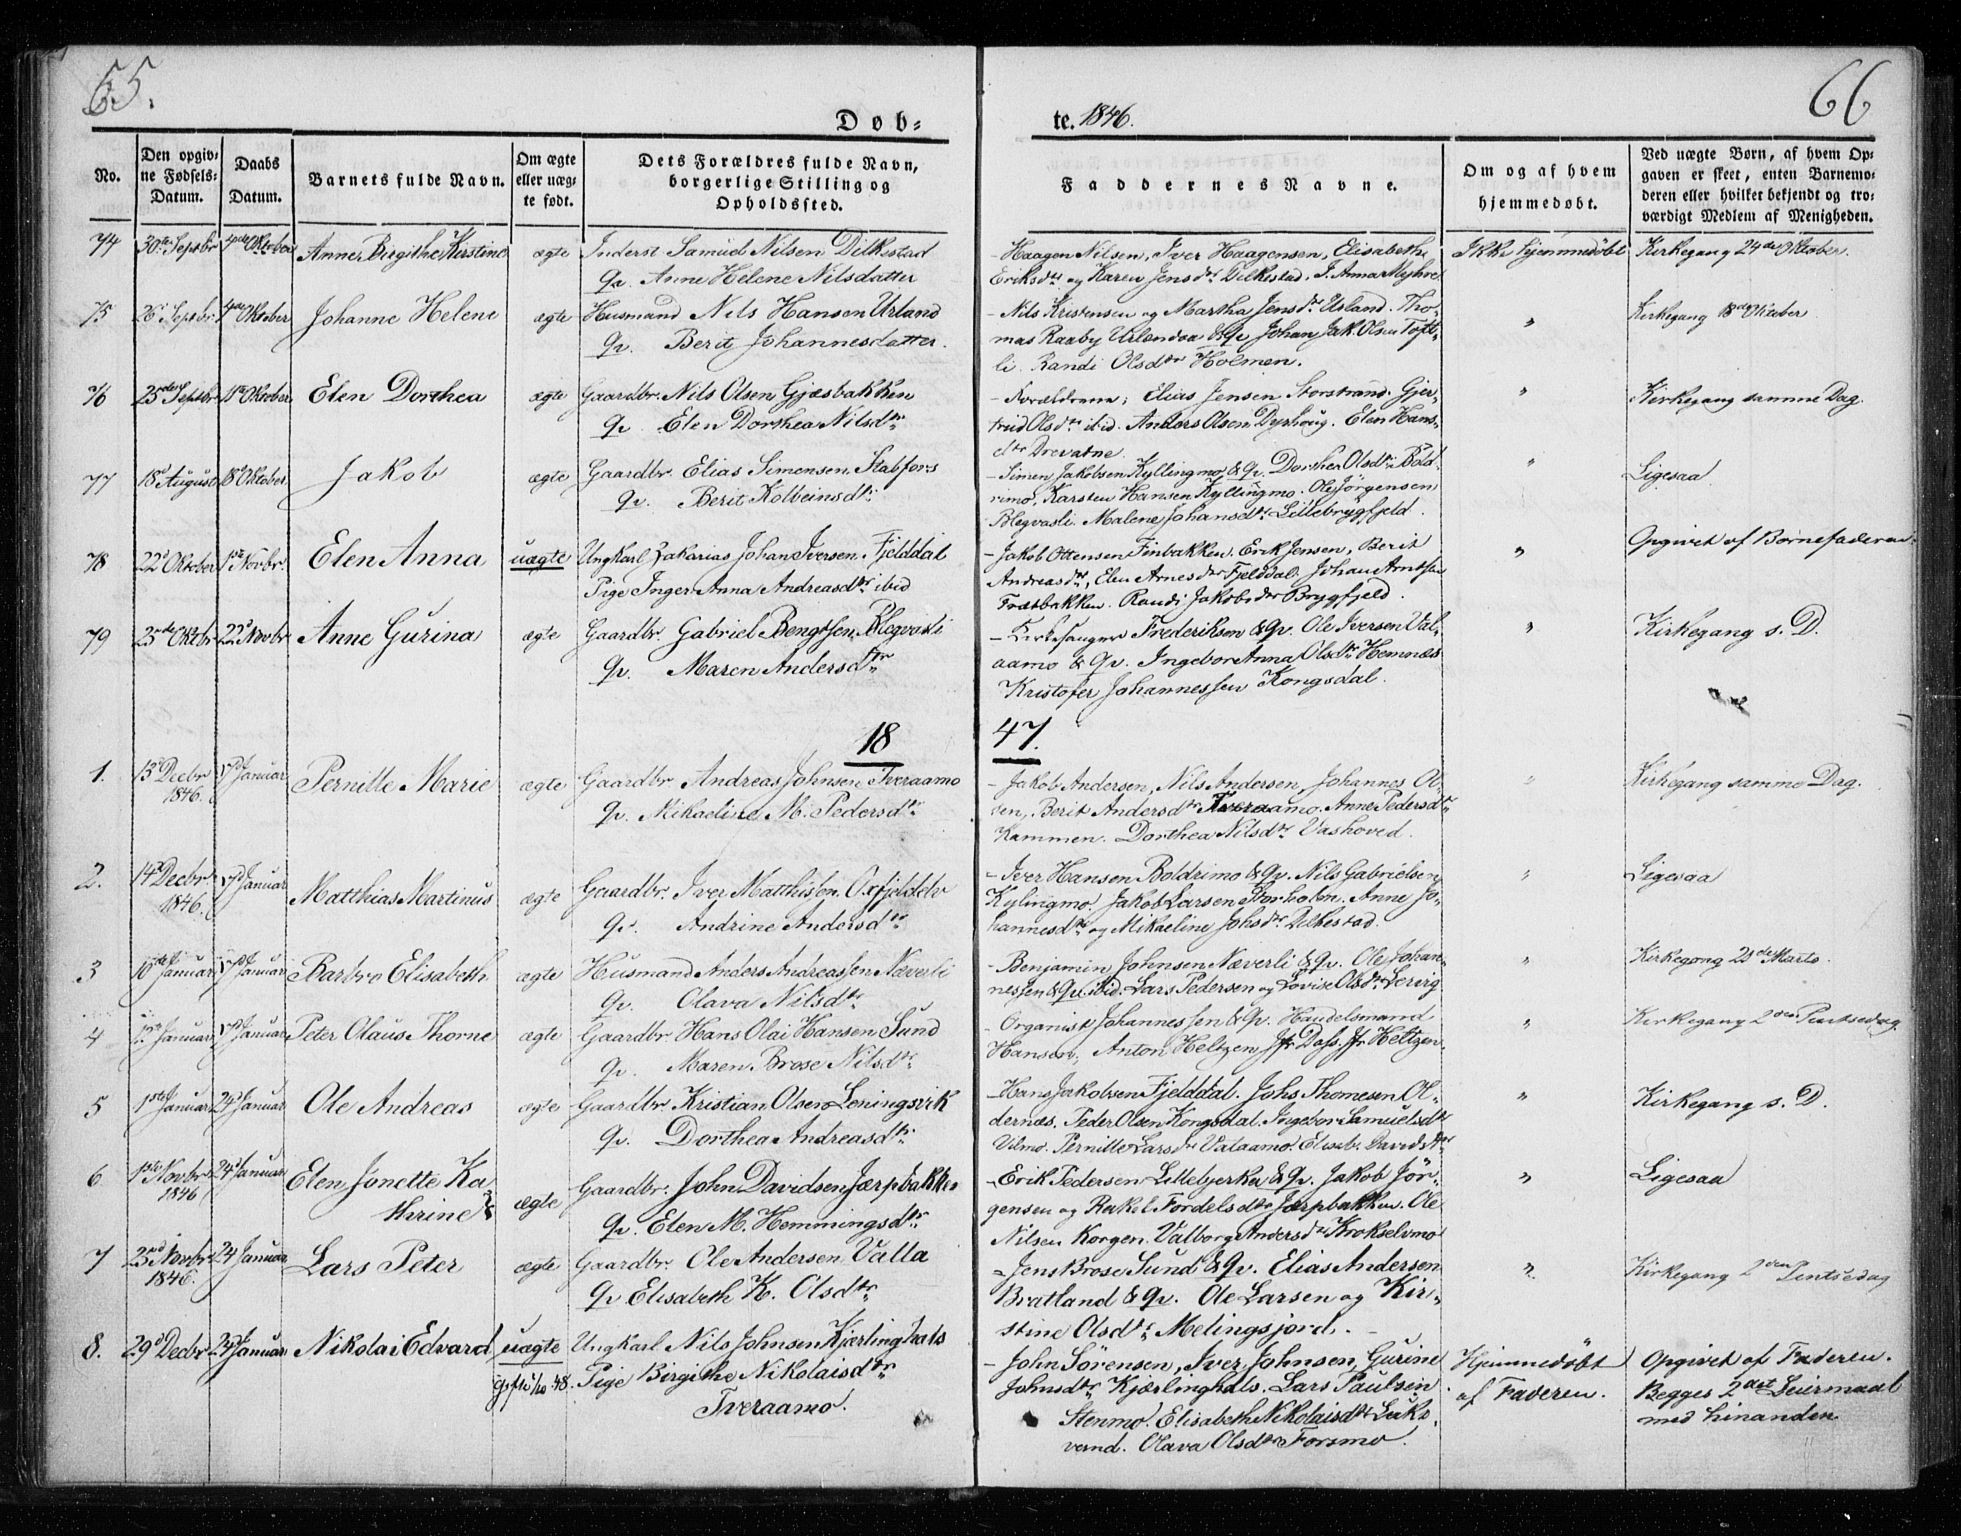 65.
66
Døb=
te. 1846.
No.
Den opgiv=
ne Fødsels=
Datum.
Daabs
Datum.
Barnets fulde Navn.
Om ægte
eller uæg=
te født.
Dets Forældres fulde Navn,
borgerlige Stilling og
Opholdssted.
Faddernes Navne.
Om og af hvem
hjemmedøbt.
Ved uægte Børn, af hvem Op=
gaven er skeet, enten Barnemo=
deren eller hvilket bekjendt og tro=
værdigt Medlem af Menigheden.
74 30te Septbr Oktober Anne Birgithe Kirstine ægte Inderst Samuel Nilsen Dilkestad
Qv. Anne Helene Nilsdatter
Haagen Nilsen, Iver Haagensen, Elisabeth
Eriksdtr og Karen Jensdtr Dilkestad. J. Anna Myhre
Ikke hjemmedøbt Kirkegang 24de Oktober.
75 26 Septbr Oktober Johanne Helene ægte Husmand Nils Hansen Urland
Qv. Berit Johannesdatter.
- Nils Kristensen og Martha Jensdtr Urland. Tho-
mas Raaby Urlandaa & Qv. Johan Jak. Olsen Toft-
li. Randi Olsdtr Holmen.
" Kirkegang 18de Oktober
76 25de Septbr 18 Oktober Elen Dorthea ægte Gaardbr. Nils Olsen Gjæsbakken
Qv. Elen Dorthea Nilsdtr
- Forældrene; Elias Jensen Storstrand. Gjer-
trud Olsdtr ibid. Anders Olsen Dyrhoug. Elen Hans-
dtr Drevatne.
" Kirkegang samme Dag.
77 18 August 18 Oktober Jakob ægte Gaardbr. Elias Simensen Stabfors
Qv. Berit Kolbeinsdtr
- Simen Jakobsen Kyllingmo & Qv. Dorthea Olsdtr Bold-
rimo. Karsten Hansen Kyllingmo. Ole Jörgensen
Blegvasli. Malene Johansdtr Lillebrygfjeld.
" Ligesaa
78 22 Oktober 1ste Novbr. Elen Anna uægte Ungkarl Zakarias Johan Iversen Fjelddal
Pige Inger Anna Andreasdtr ibid
- Jakob Ottensen Finbakken. Erik Jensen, Berit
Andreasdtr, Elen Arnesdtr Fjelddal. Johan Arntsen
Træbakken. Randi Jakobsdtr Brygfjeld.
" Opgivet af Barnefaderen.
79 25de Oktbr 22 Novbr Anne Gurina ægte Gaardbr. Gabriel Bengtsen Blegvasli
Qv. Maren Andersdtr
- Kirkesanger Frederiksen & Qv. Ole Iversen Val-
aamo & Qv. Ingebor Anna Olsdtr Hemnæs
Kristofer Johannessen Kongsdal.
" Kirkegang s. D.
18 47.
1. 13 Decbr Januar Pernille Marie ægte Gaardbr. Andreas Johnsen Tveraamo
1846. Qv. Mikaeline M. Pedersdtr
- Jakob Andersen, Nils Andersen, Johannes Ol-
sen, Berit Andersdtr Tveraamo. Anne Pedersdtr
Kammen. Dorthea Nilsdtr Vashoved.
" Kirkegang samme Dag.
2. 14 Decbr Januar Matthias Martinus ægte Gaardbr. Iver Matthisen Oxfjeldelv
1846. Qv. Andrine Andersdtr
- Iver Hansen Boldrimo & Qv. Nils Gabrielsen
Kylingmo Jakob Larsen Storholm. Anne Jo-
hannesdtr og Mikaeline Johsdtr Dilkestad.
" Ligesaa
3 10de Januar Januar Barbro Elisabeth ægte Husmand Anders Andreassen Næverli
Qv. Olava Nilsdtr
- Benjamin Johnsen Næverli & Qv. Ole Johan-
nessen & Qv. ibid. Lars Pedersen og Lovise Olsdtr
" Kirkegang Marts.
4 Januar Januar Peter Olaus Thorne ægte Gaardbr. Hans Olai Hansen Sund
Qv. Maren Brose Nilsdtr
- Organist Johannessen & Qv. Handelsmand
Hansen, Anton Heltzen Jfr Dass. Jfr Heltzen.
" Kirkegang 2den Pintsedag
5 1ste Januar 24 Januar Ole Andreas ægte Gaardbr. Kristian Olsen Leningsvik
Qv. Dorthea Andreasdtr
- Hans Jakobsen Fjelddal. Johs Thomesen Ol-
dernæs. Peder Olsen Kongsdal. Ingebor Samuelsdtr
Vilmo. Pernille Larsdtr Valaamo. Elisab. Davidsdtr
" Kirkegang s. D.
6 1ste Novbr 24 Januar Elen Jonette Ka ægte Gaardbr. John Davidsen Jærpbakken
1846 thrine Qv. Elen M. Hemmingsdtr
- Erik Pedersen Lillebjerka & Qv. Jakob Jör-
gensen og Rakel Fordelsdtr Jærpbakken. Ole
Nilsen Korgen. Valborg Andersdtr Krokselvmo
" Ligesaa
7 23 Novbr 24 Januar Lars Peter ægte Gaardbr. Ole Andersen Valla
1846. Qv Elisabeth K. Olsdtr
- Jens Brose Sund & Qv. Elias Andersen
Bratland & Qv. Ole Larsen og Kir-
stine Olsdtr Melingsjord.
" Kirkegang 2den Pintsedag
8. 29 Decbr 24 Januar Nikolai Edvard uægte Ungkarl Nils Johnsen Kjærlinghals
Gifte 1/10 48. Pige Birgithe Nikolaisdtr
Tveraamo.
- John Sörensen, Iver Johnsen, Gurine
Johnsdtr Kjærlinghals. Lars Paulsen
Stenmo. Elisabeth Nikolaisdtr Luks-
vand. Olava Olsdtr Forsmo.
Hjemmedøbt
af Faderen.
Opgivet af Faderen.
Begges 2det Leiermaal
med hinanden